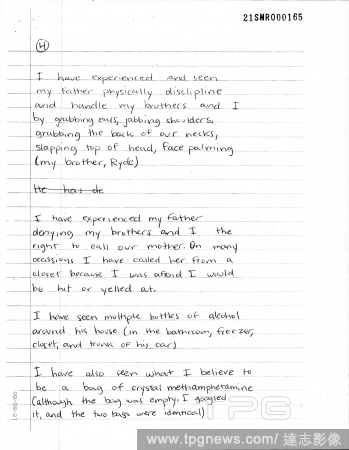 21SMRO00165
4
I have experienced and seen
my father physically disclipline
and handle my brothers and I
by grabbing ears, jabbing shoulders,
grabbing the back of our necks,
slapping top of head, face palming
(my brother, Ryde)
He has de
I have experienced my father
denying my brothers and I the
right to call our mother. On many
occasions I have called her from a
closet because I was afraid I would
be hit or yelled at.
I have seen multiple bottles of alcohol
around his house (in the bathroom, freezer,
closet, and trunk of his car)
I have also seen what I believe to
be a bag of crystal methamphetamine
(although the bag was empty. I googled
it, and the two bags were identical)
TPG
www.tpgnews.com/達志影像